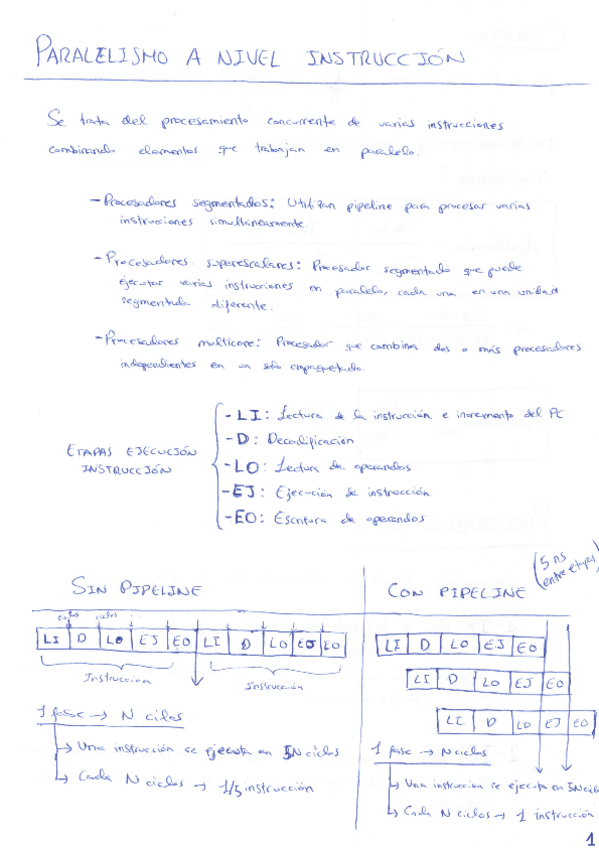 PARALELISMO A NIVEL INSTRUCCIÓN
Se trata del procesamiento concurrente de varias instrucciones
combinando elementos que trabajan en paralelo.
- Procesadores segmentados: Utilizan pipeline para procesar varias
instrucciones simultáneamente.
- Procesadores superescalares: Procesador segmentado que puede
ejecutar varias instrucciones en paralelo, cada una en una unidad
segmentada diferente.
- Procesadores multicore: Procesador que combina dos o más procesadores
independientes en un solo empaquetado.
ETAPAS EJECUCIÓN
INSTRUCCIÓN
- LI: Lectura de la instrucción e incremento del PC
- D: Decodificación
- LO: Lectura de operandos
- EJ: Ejecución de instrucción
- EO: Escritura de operandos
SIN PIPELINE
ciclos ciclos
LI D LO EJ EO LI D LO EJ EO
Instruccion Instrucción
1 fase → N ciclos
↳ Una instrucción se ejecuta en 5N ciclos
↳ Cada N ciclos → 1/5 instrucción
CON PIPELINE
(5 ns
entre etapas)
LI D LO EJ EO
LI D LO EJ EO
LI D LO EJ EO
1 fase → N ciclos
↳ Una instruccion se ejecuta en 5N cicl
↳ Cada N ciclos → 1 instrucción
1